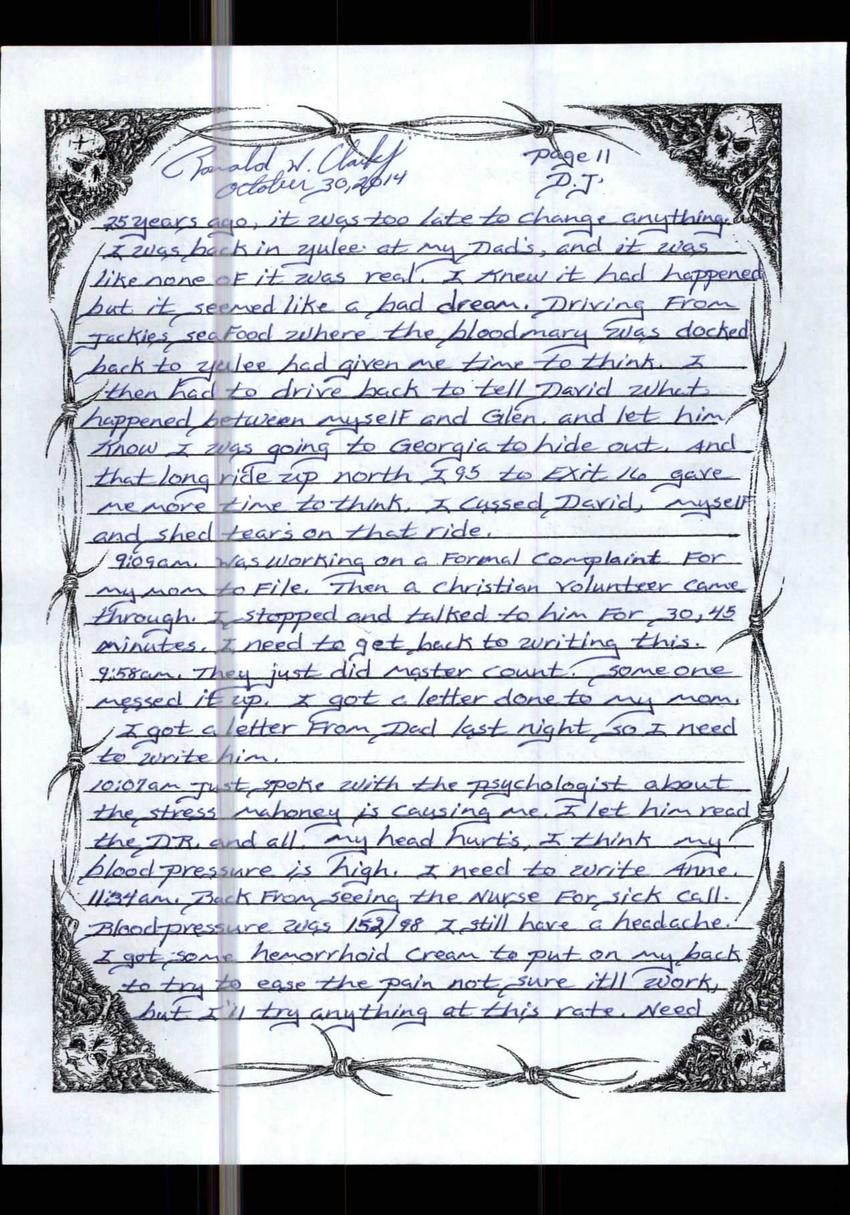 Ronald W. Clark Jr
page 11
October 30, 2014
D.J.
25 years ago, it was too late to change anything.
I was back in yulee at my Dad's, and it was
like none of it was real. I knew it had happened
but it seemed like a bad dream. Driving From
Jackies seafood where the bloodmary was docked
back to yulee had given me time to think. I
then had to drive back to tell David what
happened between myself and Glen, and let him
know I was going to Georgia to hide out. And
that long ride up north I95 to Exit 16 gave
me more time to think. I cussed David, myself
and shed tears on that ride.
9:09am. Was working on a Formal Complaint For
my mom to File. Then a christian volunteer came
through. I stopped and talked to him For 30, 45
minutes. I need to get back to writing this.
9:58am. They just did master count. Someone
messed it up. I got a letter done to my mom.
I got a letter From Dad last night, so I need
to write him.
10:07am Just spoke with the psychologist about
the stress mahoney is causing me. I let him read
the DR. and all. My head hurt's, I think my
blood pressure is high. I need to write Anne.
11:34am. Back From seeing the Nurse For sick call.
Blood pressure was 152/98 I still have a headache.
I got some hemorrhoid cream to put on my back
to try to ease the pain not sure it'll work,
but I'll try anything at this rate. Need